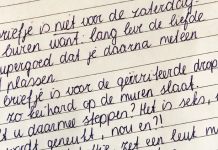 briefje is niet voor de zaterdag-
buren want lang leve de liefde
supergoed dat je daarna meteen
t plassen.
briefje is voor de geïrriteerde drop
zo keihard op de muren slaat.
t u daarmee stoppen? Het is seks,
wordt geneukt, nou en?!
zet een leuk m